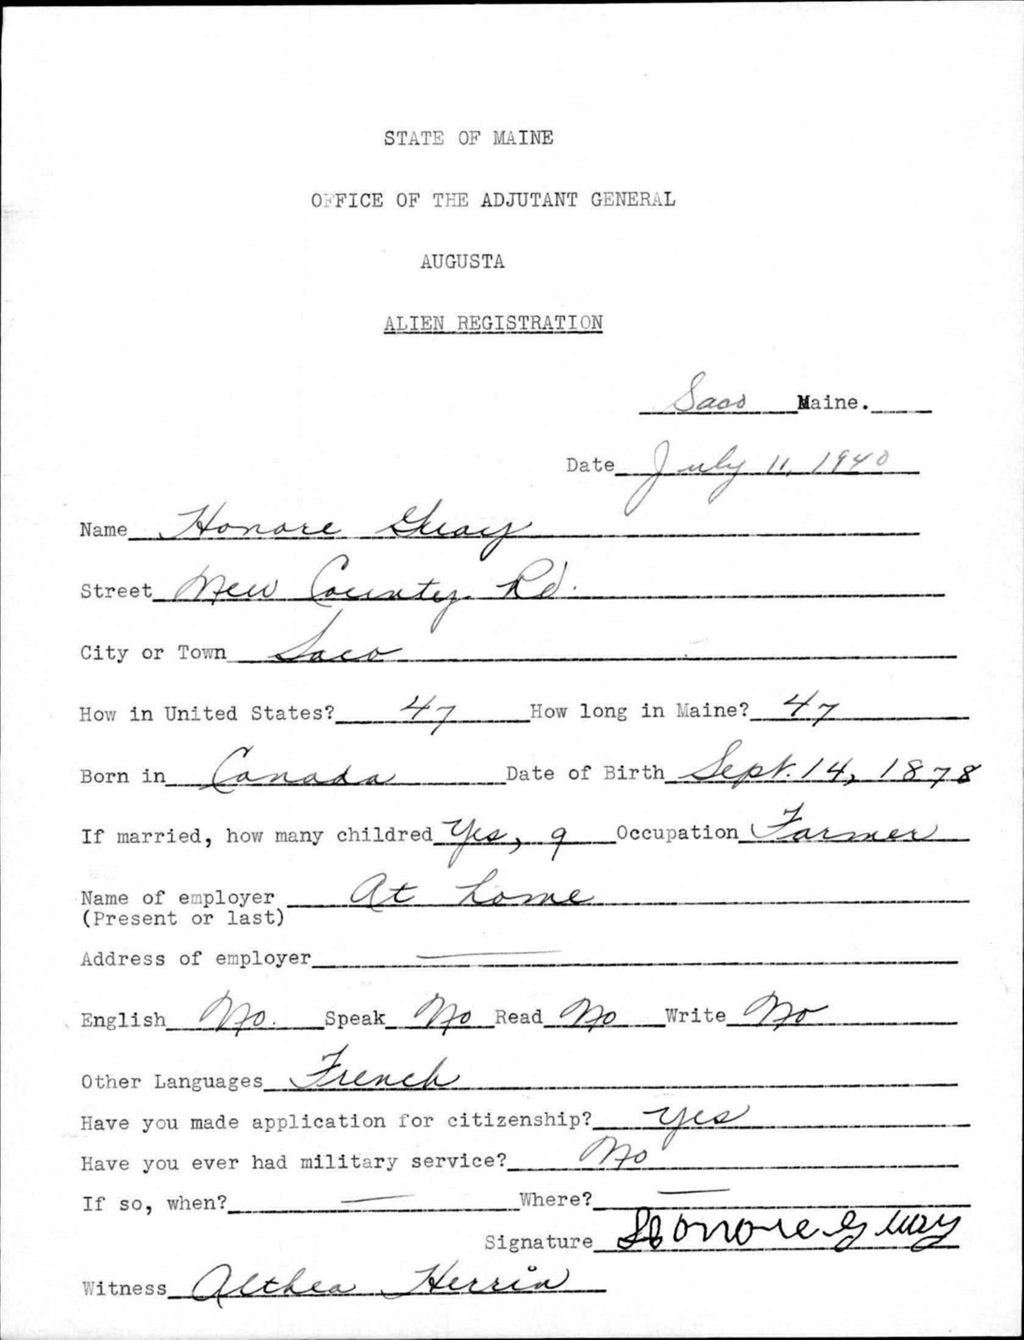 STATE OF MAINE
OFFICE OF THE ADJUTANT GENERAL
AUGUSTA
ALIEN REGISTRATION
Saco Maine.
Date July 11, 1940
Name Honore Guay
Street New County Rd.
City or Town Saco
How in United States? 47 How long in Maine? 47
Born in Canada Date of Birth Sept. 14, 1878
If married, how many childred Yes, 9 Occupation Farmer
Name of employer At home
(Present or last)
Address of employer —
English No. Speak No Read No Write No
Other Languages French
Have you made application for citizenship? Yes
Have you ever had military service? No
If so, when? — Where? —
Signature Honore Guay
Witness Althea Herrin